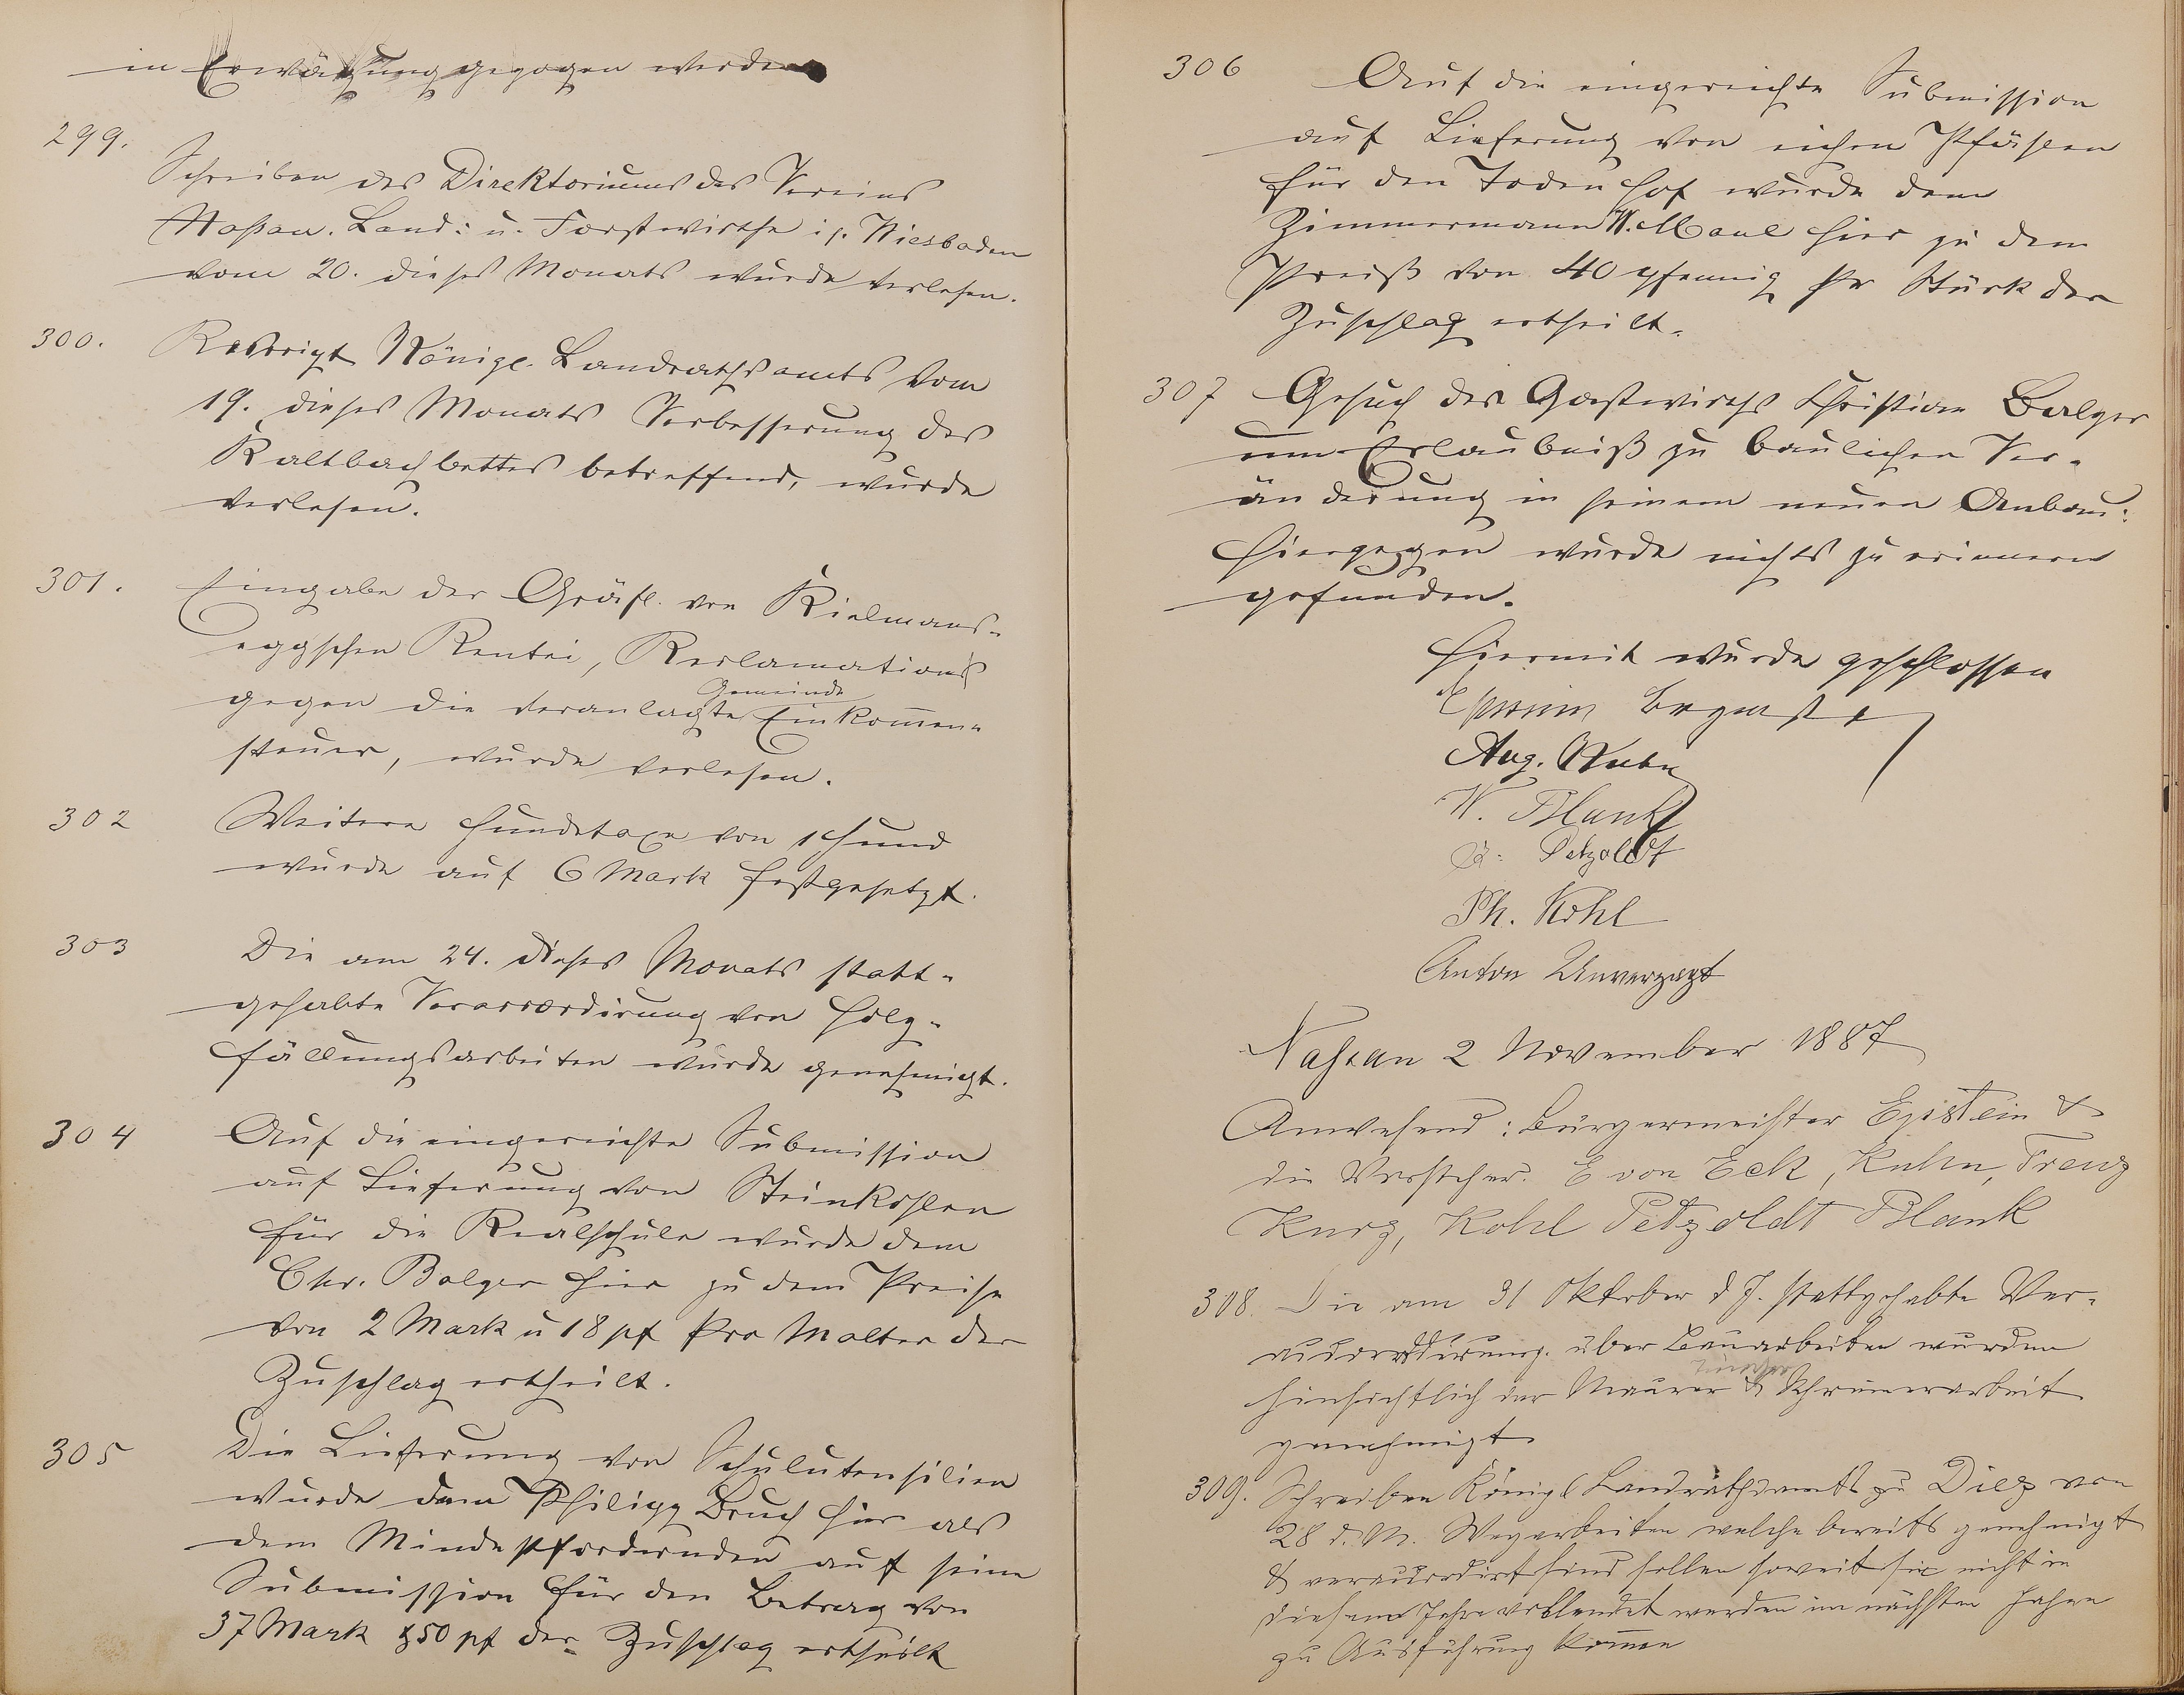 in Erwägung gezogen werden
299.
Schreiben des Direktoriums des Vereins
Naßau. Land: u. Forstwirthe in Wiesbaden
vom 20. dieses Monats wurde verlesen.
300.
Rescript Königl. Landrathsamts vom
19. dieses Monats Verbesserung des
Kaltbachbettes betreffend, wurde
verlesen.
301.
Eingabe der Gräfl. von Kielmans-
eggschen Rentei, Reclamations
gegen die veranlagte Gemeinde Einkomen-
steuer, wurde verlesen.
302
Weitere Hundetaxe von 1 Hund
wurde auf 6 Mark festgesetzt.
303
Die am 24. dieses Monats statt-
gehabte Veraccordirung von Holz-
fällungsarbeiten wurde genehmigt.
304
Auf die eingereichte Submission
auf Lieferung von Steinkohlen
für die Realschule wurde dem
Chr. Balzer hier zu dem Preise
von 2 Mark u 18 pf pro Malter der
Zuschlag ertheilt.
305
Die Lieferung von Schulutensilien
wurde dem Philipp Bruch hier als
dem Mindestfordernden auf seine
Submission für den Betrag von
37 Mark & 50 pf der Zuschlag ertheilt
306
Auf die eingereichte Submission
auf Lieferung von eichen Pfählen
für den Todenhof wurde dem
Zimmermann W. Maul hier zu dem
Preiß von 40 pfennig pr Stück der
Zuschlag ertheilt.
307 Gesuch des Gastwirths Christian Balzer
um Erlaubniß zu baulichen Ver-
änderung in seinem neuen Anbau:
Hiergegen wurde nichts zu erinnern
gefunden.
Hiermit wurde geschlossen
Epstein Bürgmstr
Aug. Kuhn
W. Blank
Petzoldt
Ph. Kohl
Anton Unverzagt
Naßau 2 November 1887
Anwesend: Bürgermeister Epstein &
die Vorsteher. E von Eck, Kuhn, Trenz
Kurz, Kohl Petzoldt Blank
308. Die am 31 Oktober d J. stattgehabte Ver-
accordirung über Bauarbeiten wurden
hinsichtlich der Maurer & Schreinerarbeit
genehmigt
309. Schreiben Königl Landrathsamts zu Diez von
28 d. M. Wegarbeiten welche bereits genehmigt
& veraccordirt sind sollen soweit sie nicht in
diesem Jahre vollendet werden im nächsten Jahre
zu Ausführung komen